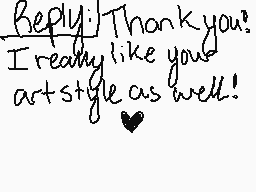 Reply: Thank you!
I really like your
art style as well!